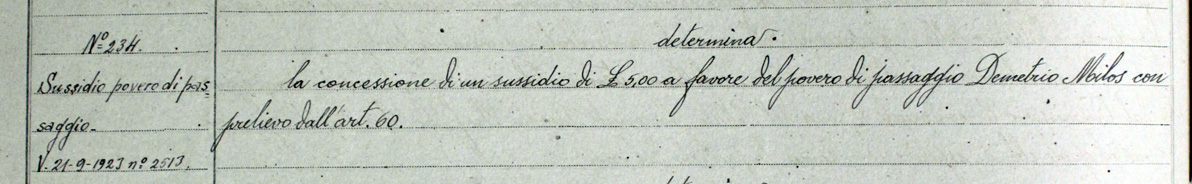 Nº 234.
Sussidio povero di pas=
saggio.
V. 21-9-1923 nº 2513.
determina.
la concessione di un sussidio di £ 5,00 a favore del povero di passaggio Demetrio Milos con
prelievo dall'art. 60.